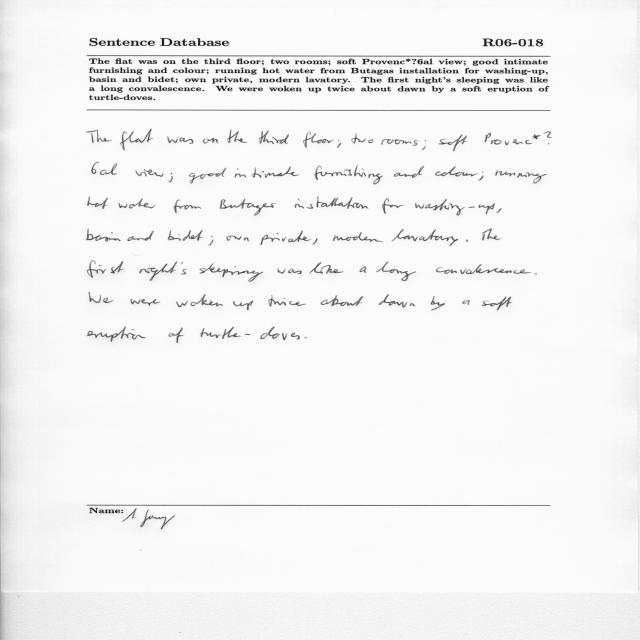 Sentence Database R06-018
The flat was on the third floor; two rooms; soft Provenc*?6al view; good intimate
furnishing and colour; running hot water from Butagas installation for washing-up,
basin and bidet; own private, modern lavatory. The first night's sleeping was like
a long convalescence. We were woken up twice about dawn by a soft eruption of
turtle-doves.
The flat was on the third floor; two rooms; soft Provenc*?
6al view; good intimate furnishing and colour; running
hot water from Butagas installation for washing-up,
basin and bidet; own private, modern lavatory. The
first night's sleeping was like a long convalescence.
We were woken up twice about dawn by a soft
eruption of turtle-doves.
Name: